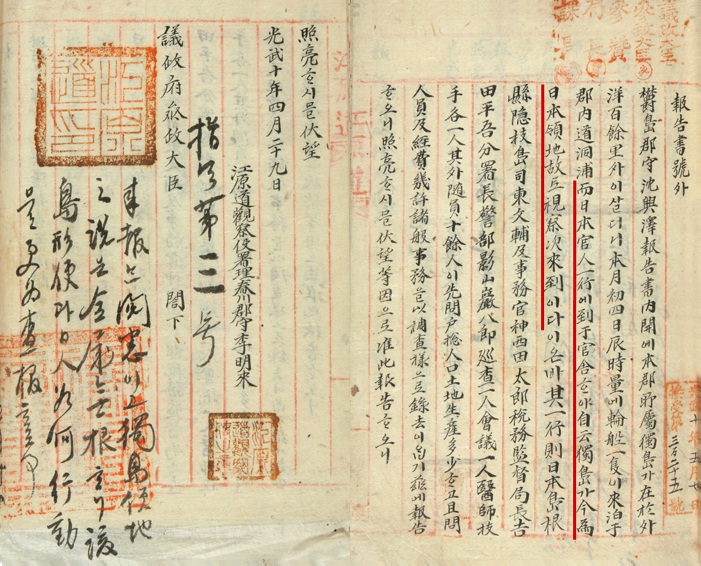 報告書號外
欝島郡守沈興澤報告書內開에本郡所屬獨島가在於外
洋百餘里外이살더니本月初四日辰時量에輪船一隻이來泊于
郡內道洞浦而日本官人一行에到于官舍ᄒᆞ야自云獨島가今爲
日本領地故로視察次來到이다이온바其一行則日本島根
縣隱枝島司東文輔及事務官神西田太郎稅務監督局長吉
田平吾分署長警部影山巖八郎巡査一人會議一人醫師技
手各一人其外隨員十餘人이先問戶摠人口土地生産多少ᄒᆞ고且問
人員及經費幾許諸般事務을以調査樣으로錄去이ᄋᆞᆸ기玆에報告
ᄒᆞ오니照亮ᄒᆞ시믈伏望等因으로准此報告ᄒᆞ오니
照亮ᄒᆞ시믈伏望
光武十年四月二十九日
江原道觀察使署理春川郡守李明來
議政府參政大臣 閤下
指令第三号
來報는閱悉이고獨島領地
之說은全屬無根ᄒᆞ나該
島形便과日人如何行動
을更爲査報ᄒᆞᆯ事